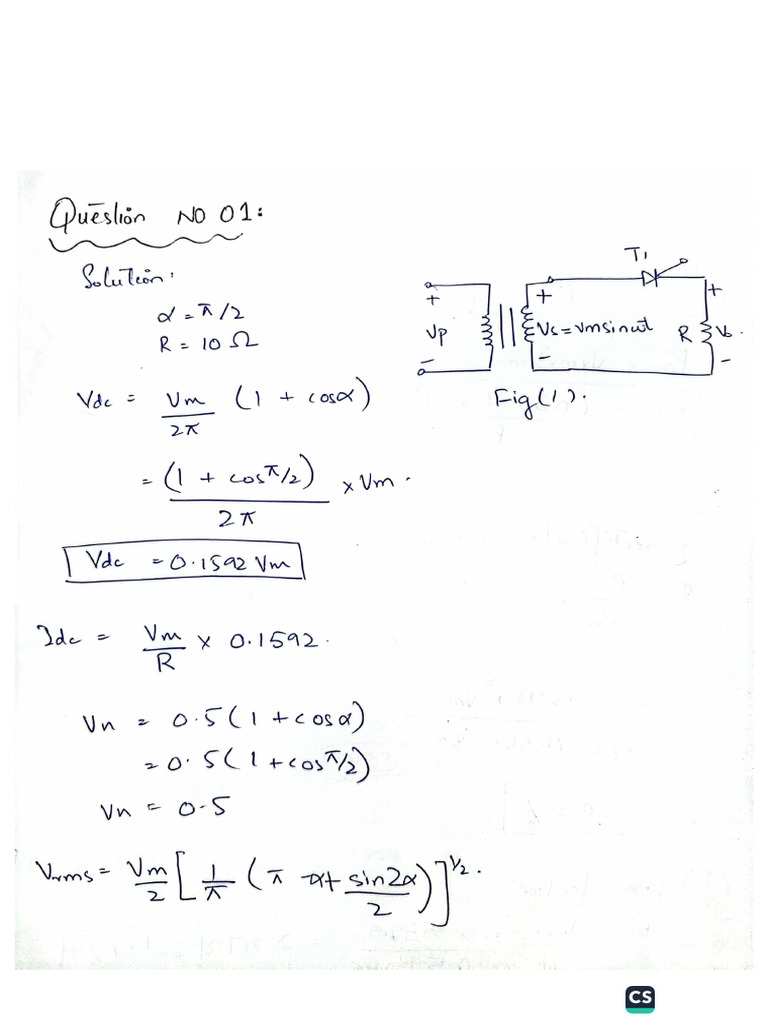 Question NO 01:
Solution:
α = π/2
R = 10 Ω
T1
+ + +
Vp Vs = vmsinωt R Vo
- - -
Fig(1).
Vdc = Vm/2π (1 + cosα)
= (1 + cosπ/2)/2π × Vm.
Vdc = 0.1592 Vm
Idc = Vm/R × 0.1592.
Vn = 0.5(1 + cosα)
= 0.5(1 + cosπ/2)
Vn = 0.5
Vrms = Vm/2 [1/π (π - α + sin2α/2)]^1/2.
CS